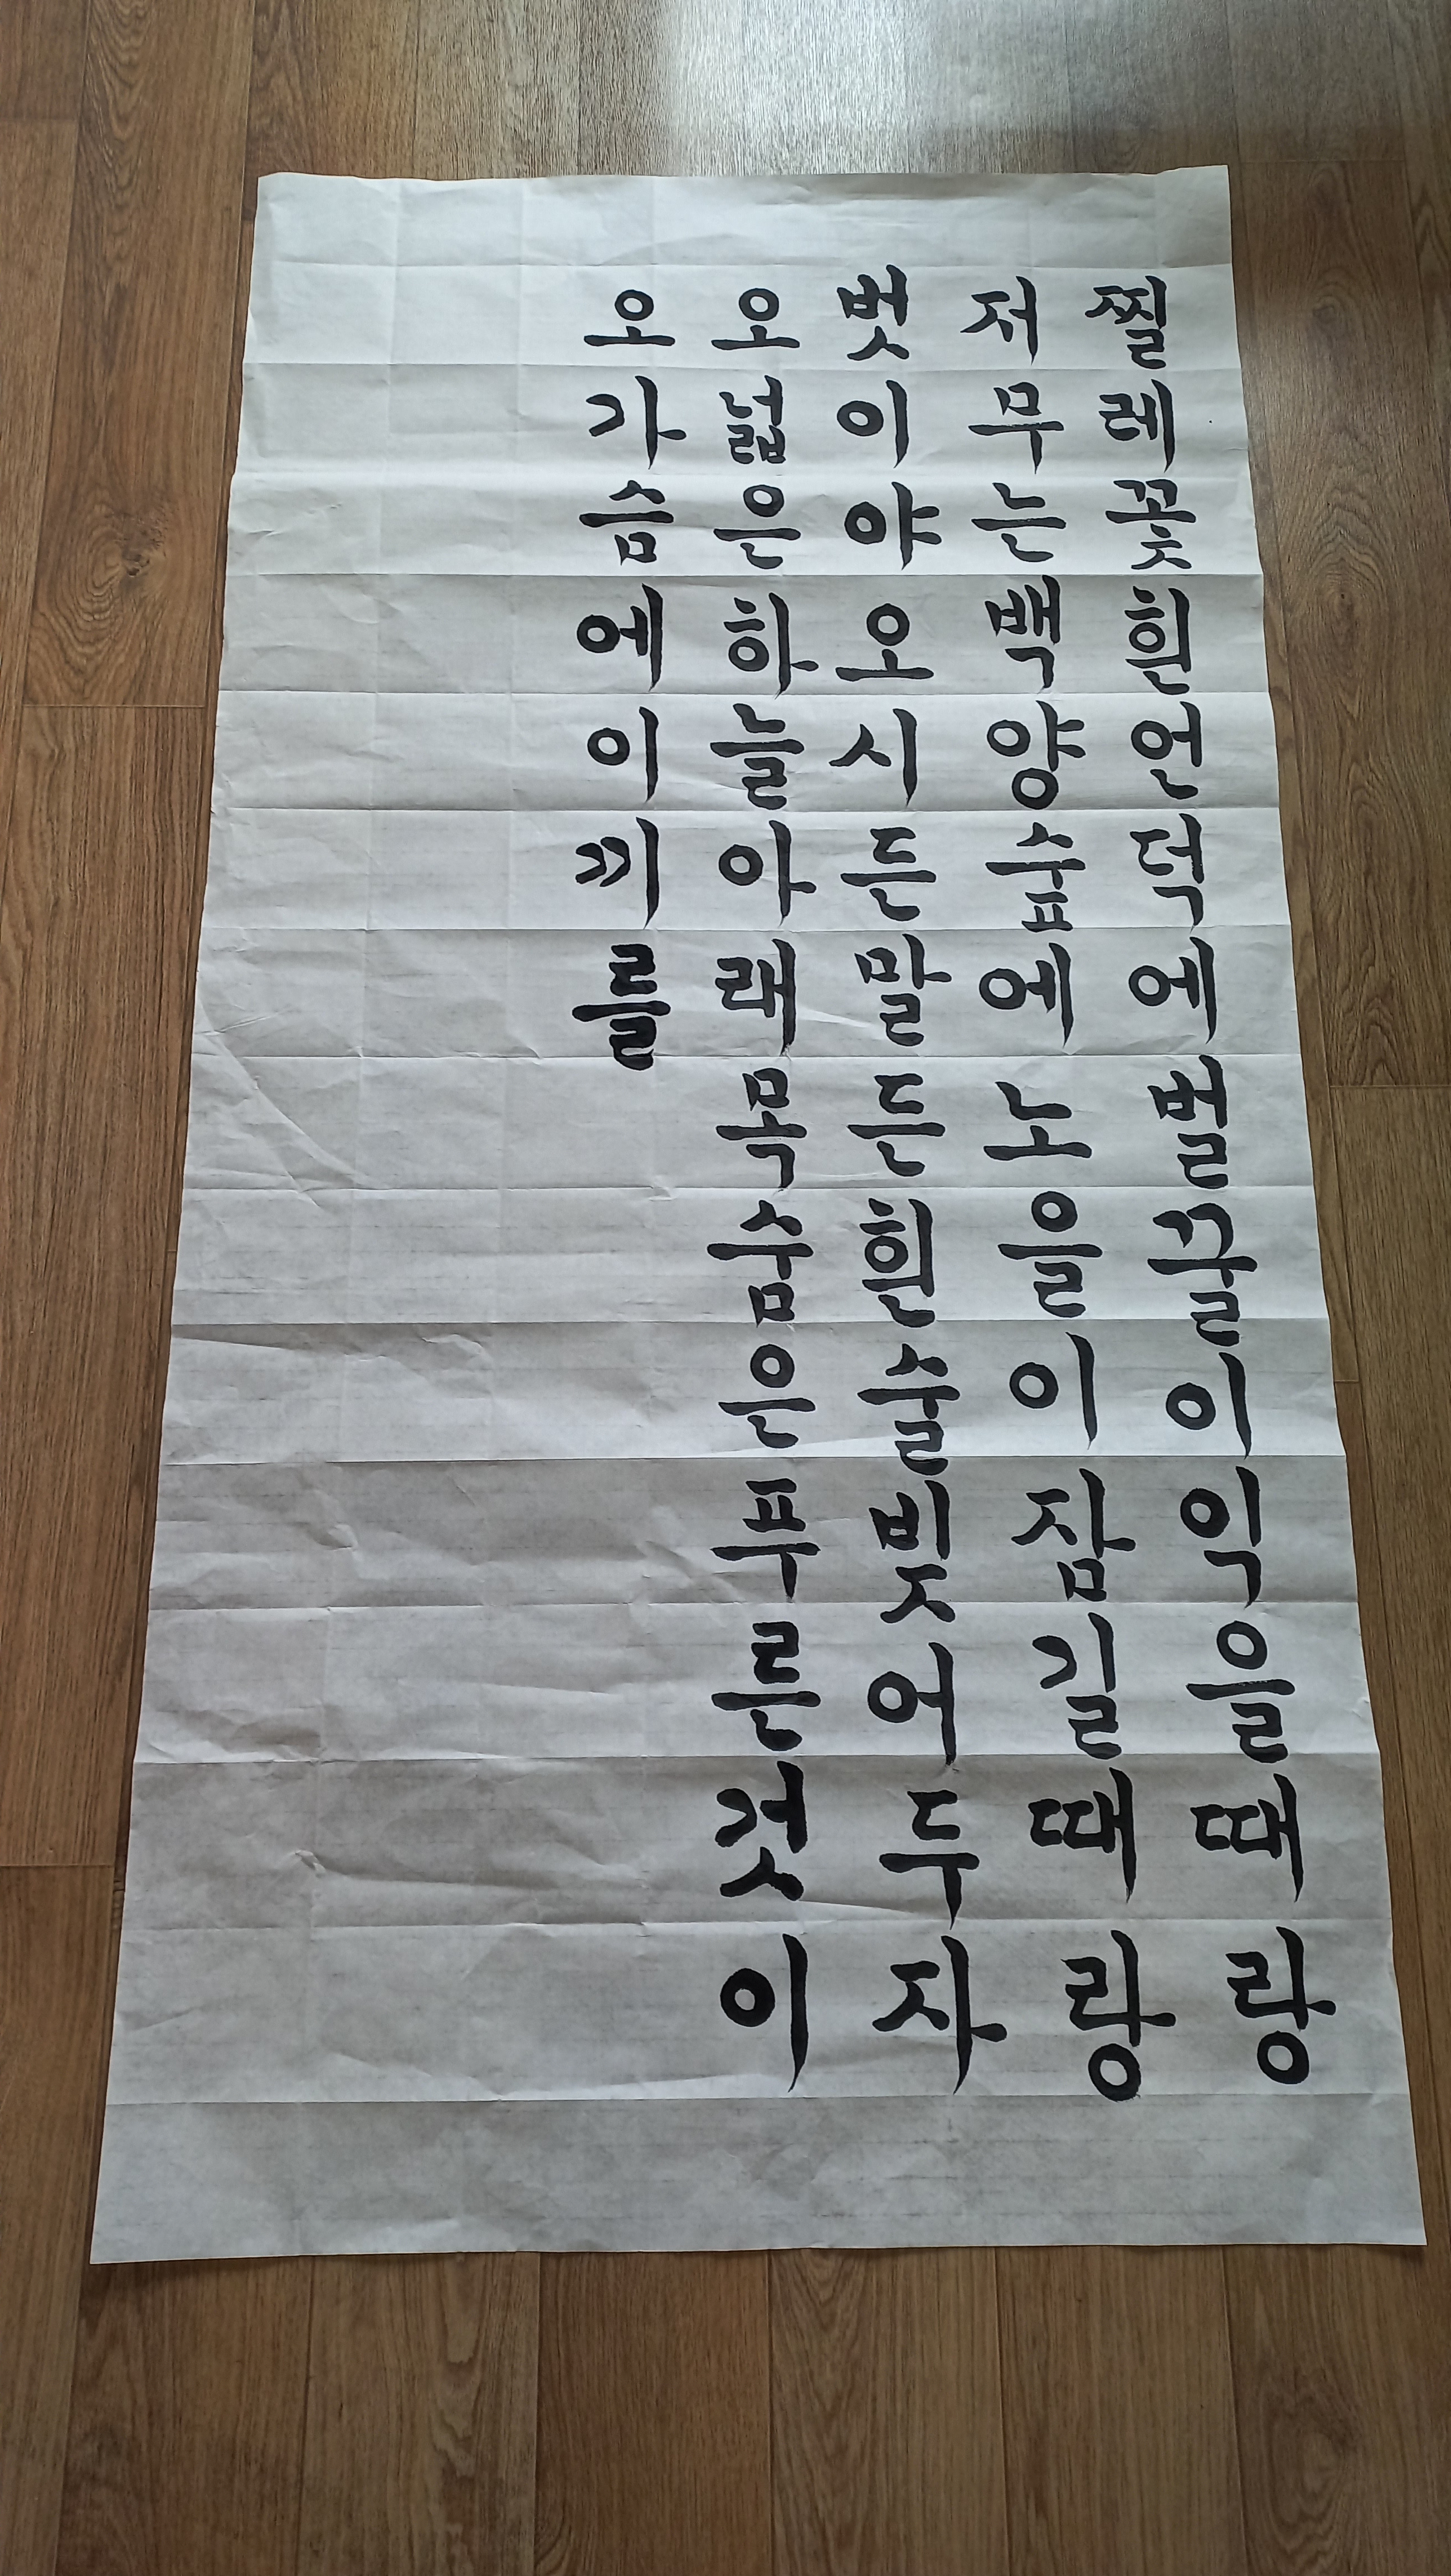 찔레꽃흰언덕에벌꿀이익을때랑
저무는백양숲에노을이잠길때랑
벗이야오시든말든흰술빚어두자
오넓은하늘아래목숨은푸른것이
오가슴에이끼를